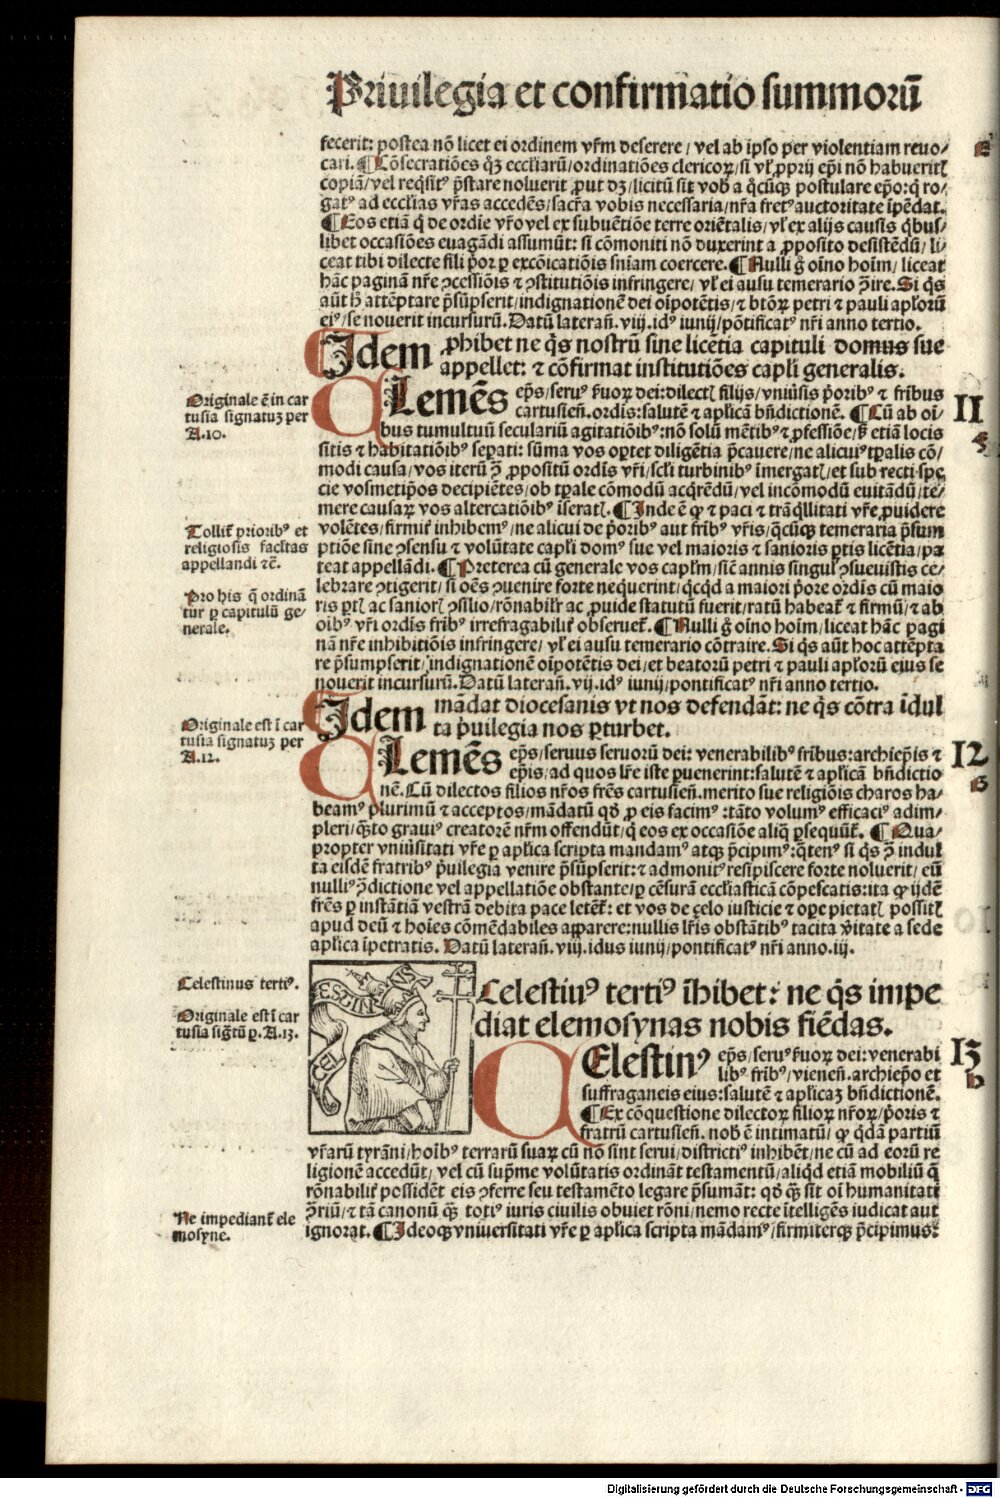 Priuilegia et confirmatio summorū
fecerit: postea nō licet ei ordinem vr̄m deserere / vel ab ipso per violentiam reuo/
cari. ¶ Cōsecratiōes q̄ꝫ eccl̄iarū / ordinatiōes clericoꝝ / si vl̓ ꝓprij ep̄i nō habuerit
copiā / vel reqͥsitꝰ p̄stare noluerit ꝓut dꝫ / licitū sit vob̄ a qͥcūqꝫ postulare ep̄o: qͥ ro/
gatꝰ ad eccl̄ias vr̄as accedēs / sacr̄a vobis necessaria / nr̄a fretꝰ auctoritate īpēdat.
¶ Eos etiā qͥ de ordīe vr̄o vel ex subuētiōe terre oriētalis / vl̓ ex alijs causis qͥbus/
libet occasiōes euagādi assumūt: si cōmoniti nō duxerint a ꝓposito desistēdū / li/
ceat tibi dilecte fili p̓or ꝑ excōicatiōis sn̄iam coercere. ¶ Nulli g̓ oīno hoīm / liceat
hāc paginā nr̄e ꝯcessiōis ⁊ ꝯstitutiōis infringere / vl̓ ei ausu temerario ꝯ̄ire. Si qͥs
aūt h̄ attēptare p̄sūpserit / indignationē dei oīpotētis / ⁊ btōꝝ petri ⁊ pauli apl̓orū
eiꝰ / se nouerit incursurū. Datū laterañ. viij. idꝰ iunij / pōtificatꝰ nr̄i anno tertio.
Idem ꝓhibet ne qͥs nostrū sine licētia capituli domus sue
appellet: ⁊ cōfirmat institutiōes capl̓i generalis.
Originale ē in car
tusia signatuꝫ per
A.10.
Clemēs ep̄s / seruꝰ ẜuoꝝ dei: dilectꝭ filijs / vniu̓sis p̓oribꝰ ⁊ fr̄ibus
cartusieñ. ordis: salutē ⁊ apl̓icā bn̄dictionē. ¶ Cū ab oī/
bus tumultuū seculariū agitatiōibꝰ: nō solū mētibꝰ ⁊ ꝓfessiōe / sꝫ etiā locis
11
sitis ⁊ habitatiōibꝰ seꝑati: sūma vos oꝑtet diligētia p̄cauere / ne alicuiꝰ tꝑalis cō/
modi causa / vos iterū ꝯ̄ ꝓpositū ordis vr̄i / scl̓i turbinibꝰ īmergatꝭ / et sub recti spe
cie vosmetip̄os decipiētes / ob tꝑale cōmodū acqͥrēdū / vel incōmodū euitādū / te/
mere causaꝝ vos altercatiōibꝰ īseratꝭ. ¶ Inde ē ꝙ ⁊ paci ⁊ trāqͥllitati vr̄e ꝓuidere
volētes / firmiṫ inhibemꝰ / ne alicui de p̓oribꝰ aut fr̄ibꝰ vr̄is / qͥcūqꝫ temeraria p̄sum
ptiōe sine ꝯsensu ⁊ volūtate capl̓i domꝰ sue vel maioris ⁊ sanioris ꝑtis licētia / pa
teat appellādi. ¶ Preterea cū generale vos capl̓m / sic̄ annis singul̓ ꝯsueuistis ce/
lebrare ꝯtigerit / si oēs ꝯuenire forte nequerint / qͥcqͥd a maiori p̓ore ordis cū maio
ris ꝑtꝭ ac saniorꝭ ꝯsilio / rōnabilṙ ac ꝓuide statutū fuerit / ratū habeat̄ ⁊ firmū / ⁊ ab
oībꝰ vr̄i ordis fr̄ibꝰ irrefragabilṙ obseruet̄. ¶ Nulli g̓ oīno hoīm / liceat hāc pagi
nā nr̄e inhibitiōis infringere / vl̓ ei ausu temerario cōtraire. Si qͥs aūt hoc attēpta
re p̄sumpserit / indignationē oīpotētis dei / et beatorū petri ⁊ pauli apl̓orū eius se
nouerit incursurū. Datū laterañ. vij. idꝰ iunij / pontificatꝰ nr̄i anno tertio.
Tollit̄ prioribꝰ et
religiosis facl̓tas
appellandi ⁊c̄.
Pro his q̄ ordinā
tur ꝑ capitulū ge/
nerale.
Idem mādat diocesanis vt nos defendāt: ne qͥs cōtra īdul
ta p̓uilegia nos ꝑturbet.
Originale est ī car
tusia signatuꝫ per
A.12.
Clemēs ep̄s / seruus seruorū dei: venerabilibꝰ fr̄ibus: archiep̄is ⁊
ep̄is / ad quos lr̄e iste ꝑuenerint: salutē ⁊ apl̓icā bn̄dictio
nē. Cū dilectos filios nr̄os fr̄es cartusieñ. merito sue religiōis charos ha/
12
beamꝰ plurimū ⁊ acceptos / mādatū qd̓ ꝓ eis facimꝰ: tāto volumꝰ efficaciꝰ adim/
pleri / qͣto grauiꝰ creatorē nr̄m offendūt / qͥ eos ex occasiōe aliqͣ ꝑsequūt̄. ¶ Qua/
propter vniu̓sitati vr̄e ꝑ apl̓ica scripta mandamꝰ atqꝫ p̄cipimꝰ: qͣtenꝰ si qͥs ꝯ̄ indul
ta eisdē fratribꝰ p̓uilegia venire p̄sūpserit: ⁊ admonitꝰ resipiscere forte noluerit / eū
nulliꝰ ꝯ̄dictione vel appellatiōe obstante / ꝑ cēsurā eccl̓iasticā cōpescatis: ita ꝙ ijdē
fr̄es ꝑ instātiā vestrā debita pace letēt̄: et vos de çelo iusticie ⁊ oꝑe pietatꝭ possitꝭ
apud deū ⁊ hoīes cōmēdabiles apparere: nullis lr̄is obstātibꝰ tacita v̓itate a sede
apl̓ica īpetratis. Datū laterañ. viij. idus iunij / pontificatꝰ nr̄i anno. iij.
Celestinus tertiꝰ.
Originale est ī car
tusia sigtū ꝑ. A.13.
CELESTINVS
Celestiuꝰ tertiꝰ īhibet: ne qͥs impe
diat elemosynas nobis fiēdas.
Celestinꝰ ep̄s / seruꝰ ẜuoꝝ dei: venerabi
libꝰ fr̄ibꝰ / vieneñ. archiep̄o et
suffraganeis eius: salutē ⁊ apl̓icaꝫ bn̄dictionē.
¶ Ex cōquestione dilectoꝝ filioꝝ nr̄oꝝ / p̓oris ⁊
fratrū cartusieñ. nob̄ ē intimatū / ꝙ qͥdā partiū
13
vr̄arū tyrāni / hoībꝰ terrarū suaꝝ cū nō sint serui / districtiꝰ inhibēt / ne cū ad eorū re
ligionē accedūt / vel cū sup̄me volūtatis ordināt testamentū / aliqͥd etiā mobiliū q̄
rōnabilṙ possidēt eis ꝯferre seu testamēto legare p̄sumāt: qd̓ qͣꝫ sit oī humanitati
ꝯ̄riū / ⁊ tā canonū qͣꝫ totiꝰ iuris ciuilis obuiet rōni / nemo recte ītelligēs iudicat aut
ignorat. ¶ Ideoqꝫ vniuersitati vr̄e ꝑ apl̓ica scripta mādamꝰ / firmiterqꝫ p̄cipimus:
Ne impediant̄ ele
mosyne.
Digitalisierung gefördert durch die Deutsche Forschungsgemeinschaft - DFG